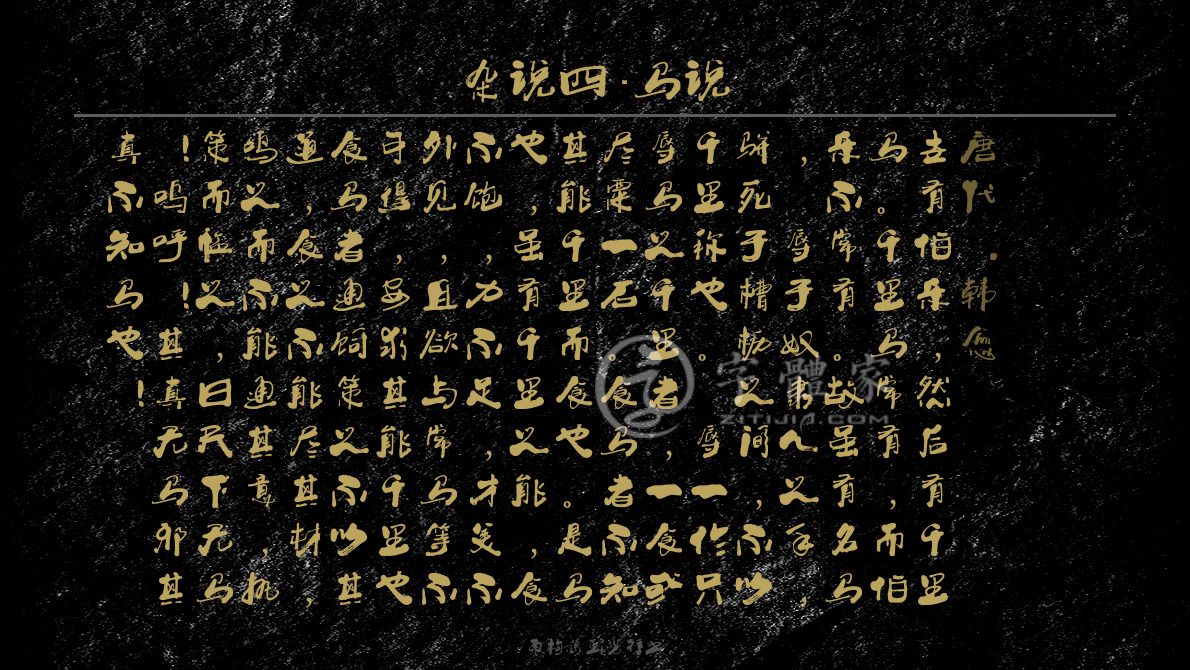 杂说四·马说
唐代.韩愈
世有伯乐,然后有千里
马。千里马常有,而伯
乐不常有。故虽有名马
, 辱于奴隶人之手,
骈死于槽枥之间,不以
千里称也。 辱一作只
辱马之千里者马一食或
尽粟一石。食马者不知
其能千里而食也。是马
也,虽有千里之能,食
不饱,力不足,才美不
外见,且欲与常马等不
可得,安求其能千里也
食马者通饲策之不以其
道,食之不能尽其材,
鸣之而不能通其意,执
策而临之,曰天下无马
!呜呼!其真无马邪其
真不知马也!
字體家
ZITIJIA.COM